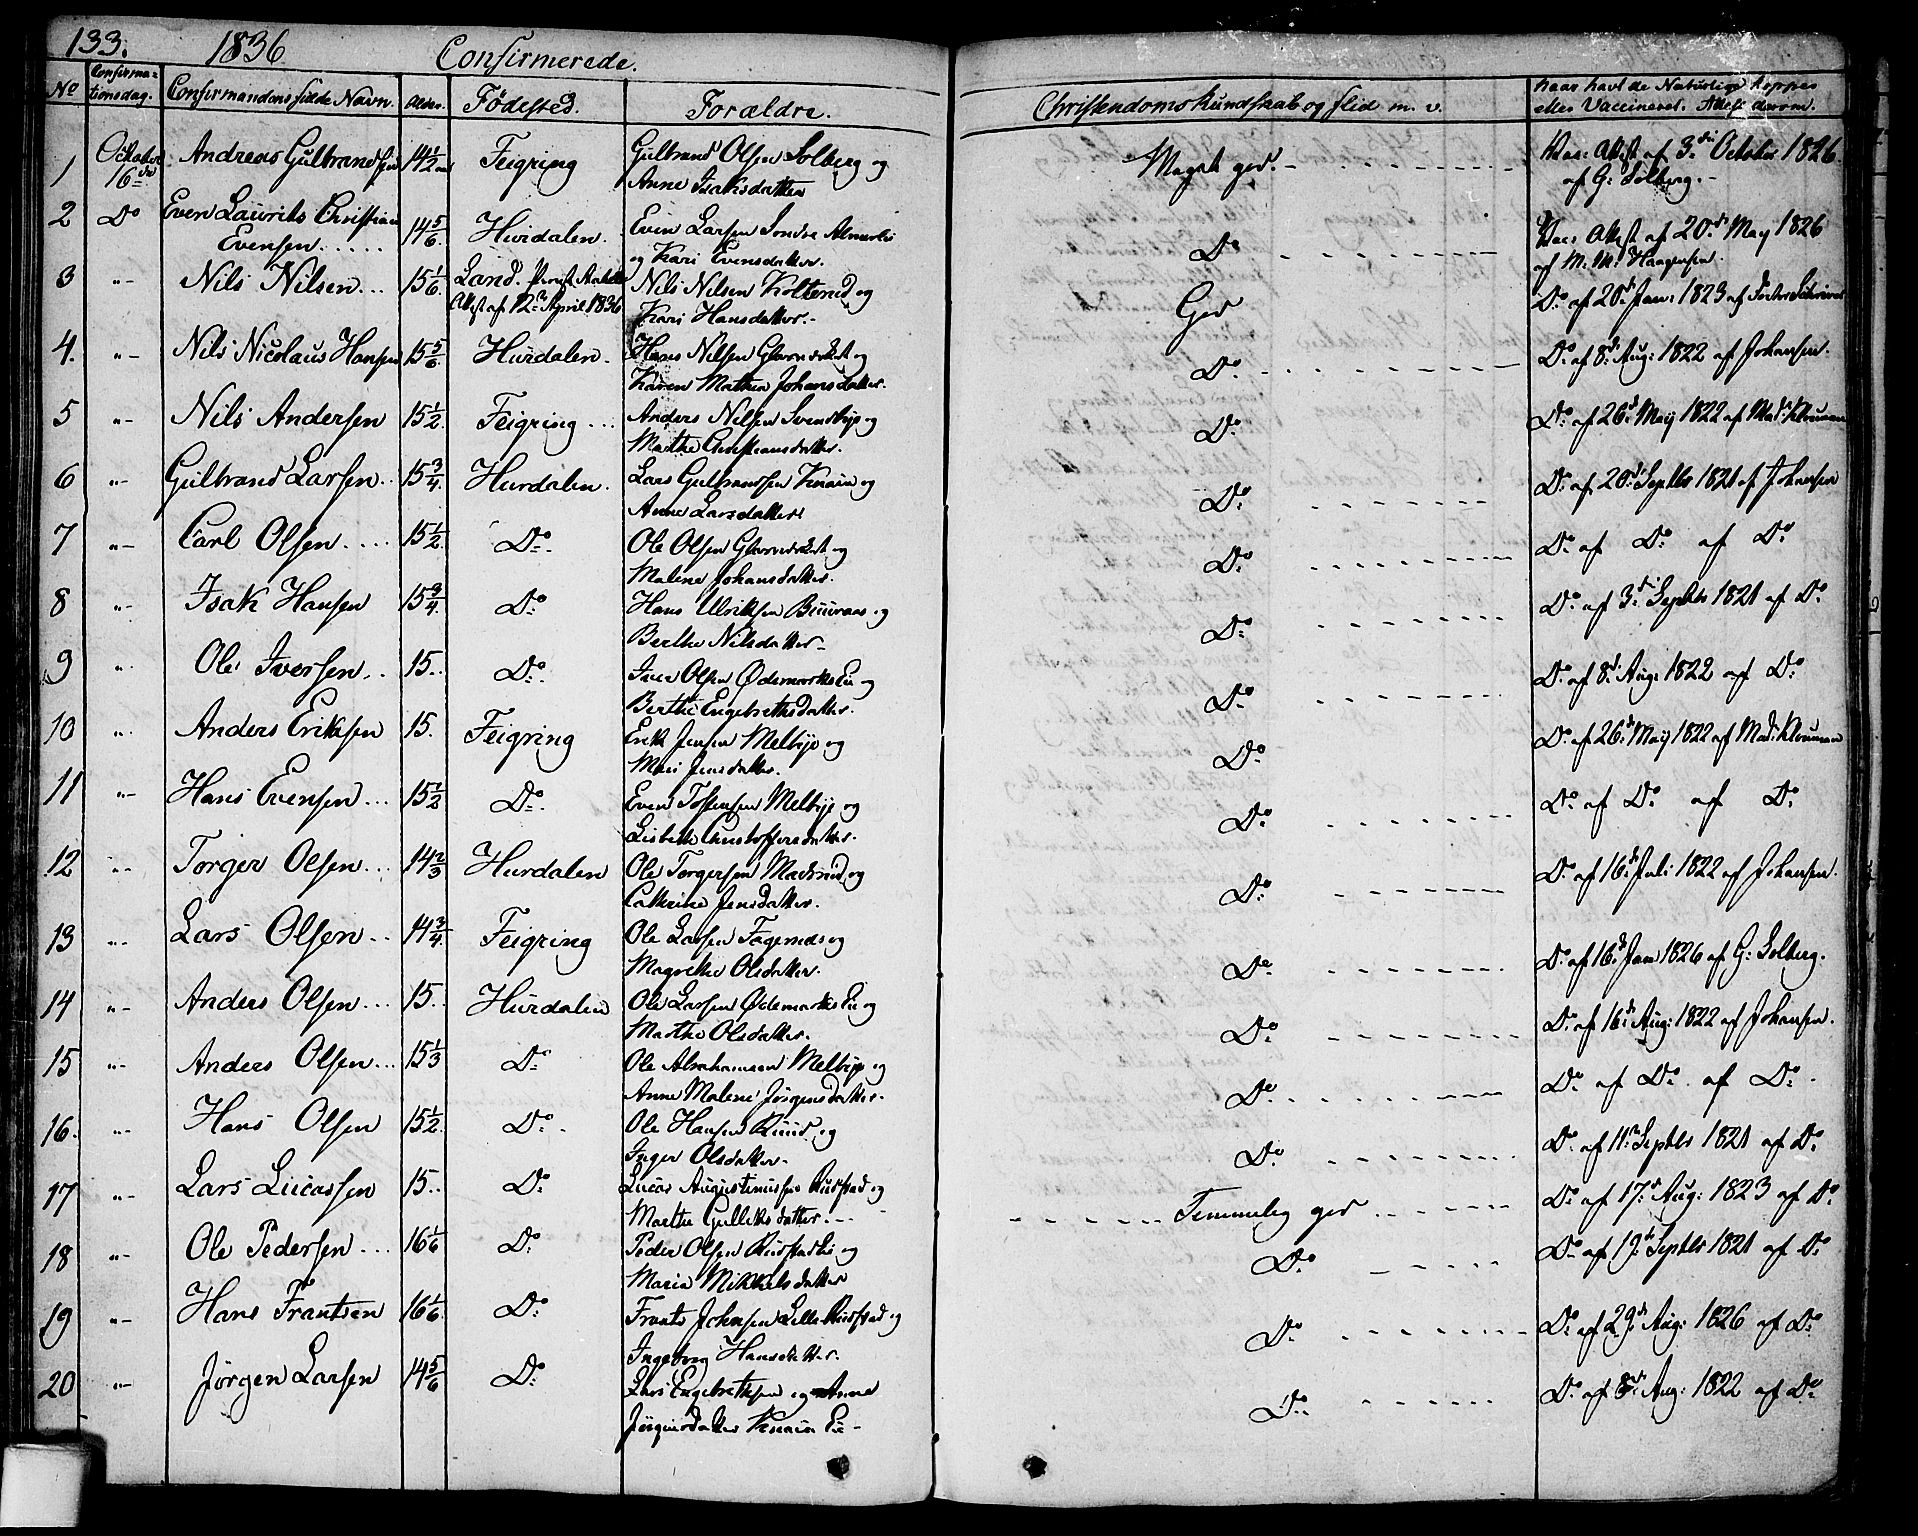 133. 1836 Confirmerede.
No Confirma-tionsdag. Confirmandens fulde Navn. Alder. Födested. Forældre. Christendoms Kundskab og flid m. v. naar havt de Naturlige Kopper eller Vaccineret. Attest derom.
1 October 16de Andreas Gulbrandsen 14 1/2 Feigring Gulbrand Olsen Solberg og Meget god. Vac: Attest af 3.die October 1826
Anne Isaksdatter af G: Solberg.
2 Do Even Laurits Christian 14 5/6. Hurdalen. Even Larsen Söndre Do Vac: Attest af 20.de May 1826
Evensen og Kari Evensdatter. af M. M: Haagensen.
3 "- Nils Nilsen 15 1/6. Land. Nils Nilsen og God Do af 20.de Jan: 1823 af
Attest af 12te April 1836 Kari Hansdatter.
4. "- Nils Nicolaus Hansen 15 5/6 Hurdalen. Hans Nilsen og Do. Do. af 8.de Aug: 1822 af Johansen.
Karen Mathea Johansdatter.
5 "- Nils Andersen 15 1/2. Feigring Anders Nilsen Svendbye og Do. Do. af 26.de May 1822 af Mad:
Marthe Christiansdatter.
6 "- Gulbrand Larsen 15 3/4. Hurdalen. Lars Gulbrandsen Knain og Do. Do. af 20.de Septbr 1821 af Johansen
Anne Larsdatter
7 "- Carl Olsen 15 1/2. Do. Ole Olsen og Do. Do. af Do. af Do
Malene Johansdatter.
8 "- Isak Hansen 15 3/4. Do. Hans Ulriksen og Do. Do. af 3.de Septbr 1821 af Do.
Berthe Nilsdatter
9 "- Ole Iversen 15. Do. Iver Olsen Ødemarks Eie og Do. Do. af 8.de Aug: 1822 af Do.
Berthe Engebrethsdatter.
10 "- Anders Eriksen 15. Feigring Erik Jensen Melbye og Do. Do. af 26.de May 1822 af Mad:
Mari Jensdatter.
11 "- Hans Evensen 15 1/2 Do. Even Tostensen Melbye og Do. Do. af Do. af Do.
Lisbeth Christophersdatter.
12 "- Torger Olsen 14 2/3 Hurdalen Ole Torgersen Madsrud og Do. Do. af 16.de Juli 1822 af Johansen.
Cathrine Jensdatter.
13 "- Lars Olsen 14 3/4. Feigring Ole Larsen og Do. Do. af 16.de Jan 1826 af G: Solberg.
Magrethe Olsdatter.
14 "- Anders Olsen 15. Hurdalen Ole Larsen Ødemarks Eie og Do. Do. af 16.de Aug: 1822 af Johansen.
Marthe Olsdatter.
15 "- Anders Olsen 15 1/3 Do. Ole Abrahamsen Melbye og Do. Do. af Do. af Do.
Anne Malene Jörgensdatter.
16. "- Hans Olsen 15 1/2. Do. Ole Hansen Ruud og Do. Do. af 11.te Septbr 1821 af Do.
Inger Olsdatter.
17 "- Lars Lucassen 15. Do. Lucas Augustinussen Rustad og Temmelig god Do. af 17.de Aug: 1823 af Do.
Marthe Gulliksdatter.
18 "- Ole Pedersen 16 1/6 Do. Peder Olsen og Do. Do. af 19.de Septbr 1821 af Do.
Maria Mikkelsdatter
19 "- Hans Frantsen 16 1/6. Do. Frants Johnsen Lille Rustad og Do. Do. af 29.de Aug: 1826 af Do.
Ingeborg Hansdatter.
20 "- Jörgen Larsen 14 5/6 Do. Lars Engebrethsen og Anne Do. Do. af 8.de Aug: 1822 af Do.
Jörgensdatter Knain Eie